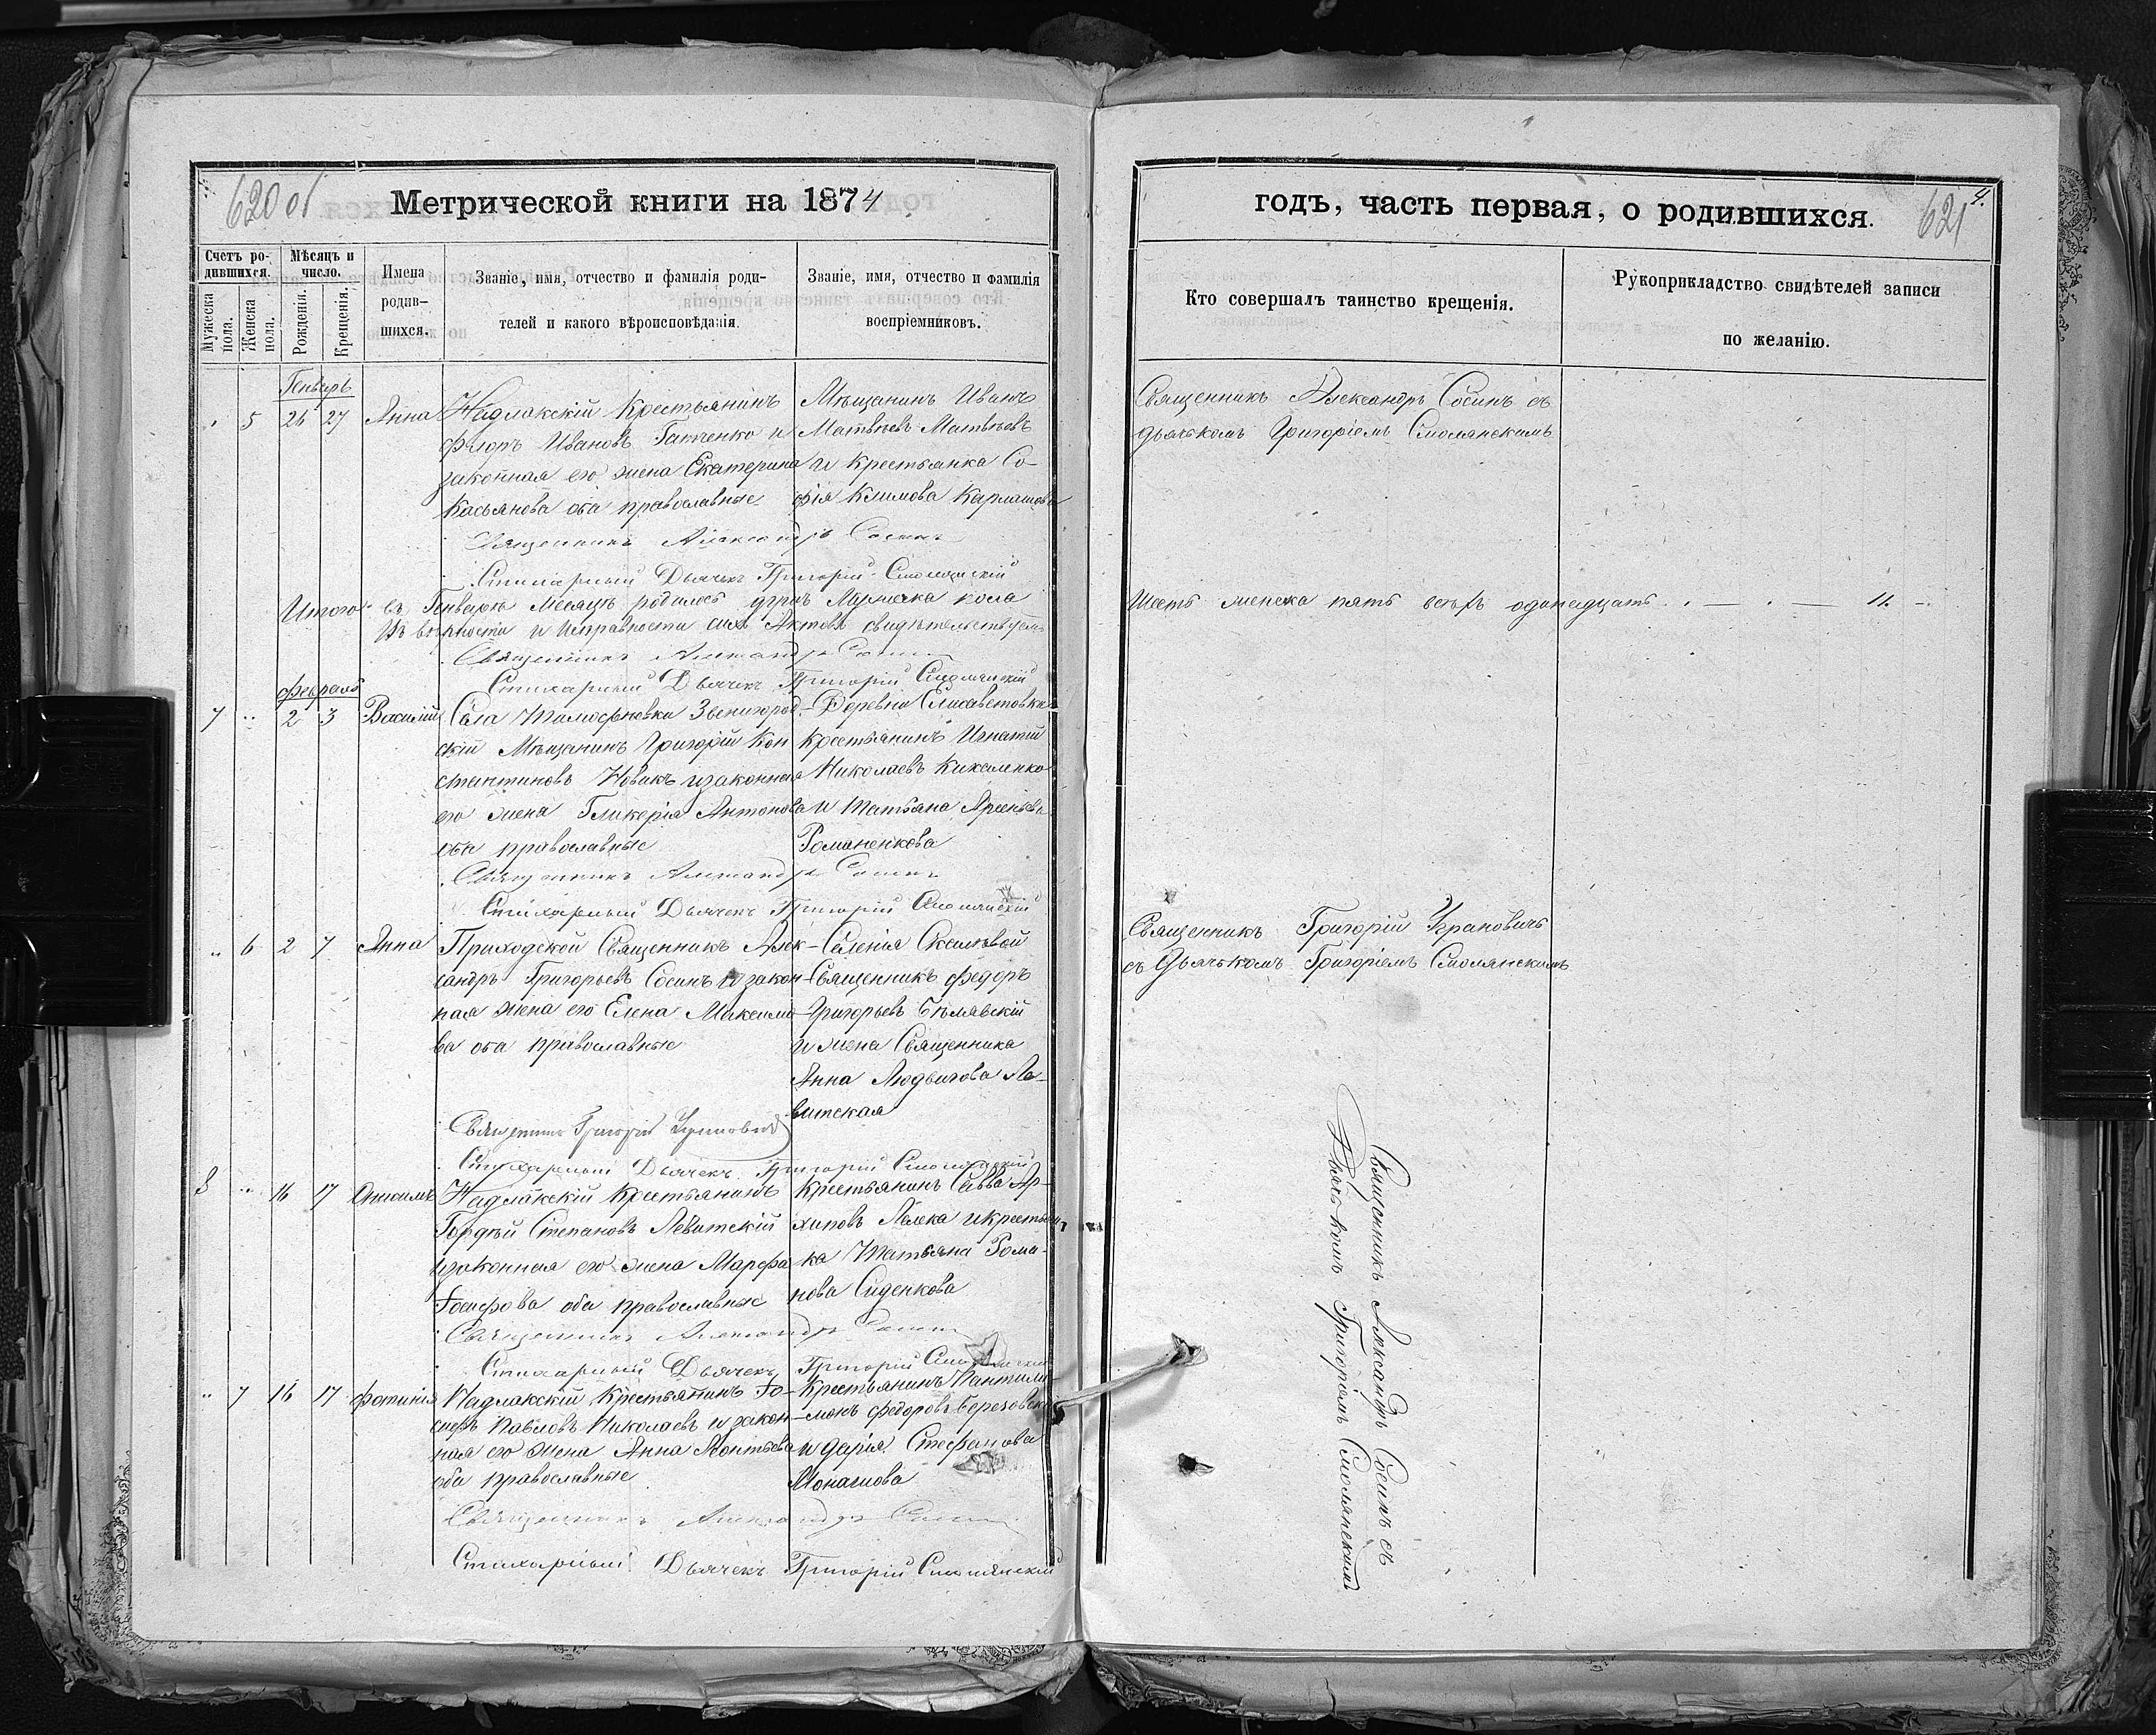 620 об
Метрической книги на 1874
Счетъ ро-
дившихся.
Мѣсяцъ и
число.
Мужеска
пола.
Женска
пола.
Рожденія.
Крещенія.
Имена
родив-
шихся.
Званіе, имя, отчество и фамилія роди-
телей и какого вѣроисповѣданія.
Званіе, имя, отчество и фамилія
воспріемниковъ.
Генварь
5 26 27 Анна
Надлакскій Крестьянинъ
Ивановъ Гатченко и
законная его жена Екатерина
Касьянова оба православные
Мѣщанинъ Иванъ
Матвѣевъ Матвѣевъ
и крестьянка Со-
фія Климова
Священникъ Александръ Сосинъ
Стихарный Дьячекъ Григорій Смолянскій
Итого въ Генварѣ месяцѣ родилось пола
Въ вѣрности и исправности сихъ Актовъ свидѣтельствуемъ
Священникъ Александръ Сосинъ
Стихарный Дьячекъ Григорій Смолянскій
Февраль
7 " 2 3 Василій
Села Тимофѣевки Звенигород-
скій Мѣщанинъ Григорій Кон
стантиновъ Новакъ и законная
его жена Гликерія Антонова
оба православные
Деревни Елисаветовки
крестьянинъ Игнатій
Николаевъ
и Татьяна Арсеньева
Романенкова
Священникъ Александръ Сосинъ
Стихарный Дьячекъ Григорій Смолянскій
" 6 2 7 Анна
Приходской Священникъ Алек-
сандръ Григорьевъ Сосинъ и закон-
ная жена его Елена Максимо-
ва оба православные
Селенія
Священникъ Федоръ
Григорьевъ Бѣлявскій
и жена Священника
Анна Людвигова Ле-
витская
Священникъ Григорій
Стихарный Дьячекъ Григорій Смолянскій
8 " 16 17 Онисимъ
Надлакскій Крестьянинъ
Гордѣй Степановъ Левитскій
и законная его жена Марфа
Іосифова оба православные
Крестьянинъ Савва Ар-
хиповъ Лелека и крестьян
ка Татьяна Рома-
нова Сиденкова
Священникъ Александръ Сосинъ
Стихарный Дьячекъ Григорій Смолянскій
" 7 16 17 Фотинія
Надлакскій Крестьянинъ Іо-
сифъ Павловъ Николаевъ и закон-
ная его жена Анна Леонтьева
оба православные
Крестьянинъ Пантели-
монъ Федоровъ
и Дарія Стефанова
Монашова
Священникъ Александръ Сосинъ
Стихарный Дьячекъ Григорій Смолянскій
годъ, часть первая, о родившихся.
621
4.
Кто совершалъ таинство крещенія.
Рукоприкладство свидѣтелей записи
по желанію.
Священникъ Александръ Сосинъ съ
дьячкомъ Григоріемъ Смолянскимъ
Шесть женска пять всѣхъ одинадцать. — 11. —
Священникъ Григорій
съ Дьячкомъ Григоріемъ Смолянскимъ
Священникъ Александръ Сосинъ съ
Дьячкомъ Григоріемъ Смолянскимъ